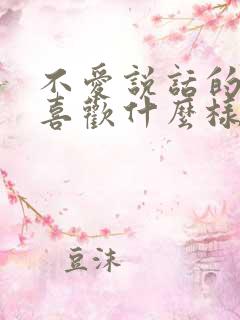 不愛說話的
喜歡什麼樣
豆沫